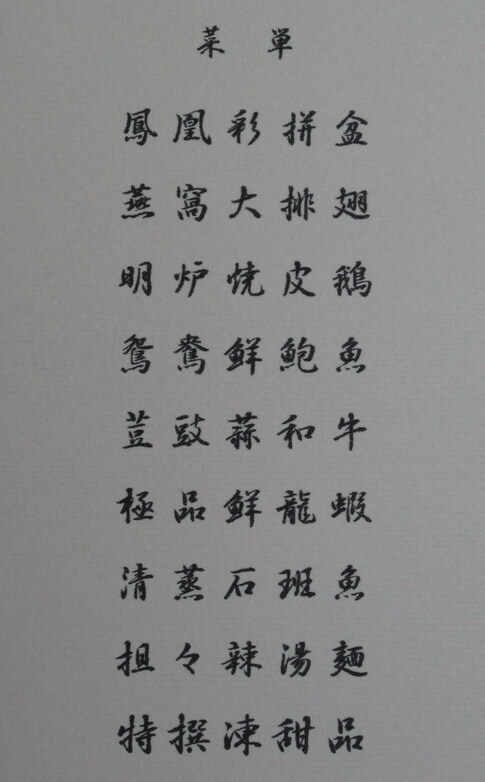 菜単
鳳凰彩拼盆
燕窩大排翅
明炉焼皮鵝
鴛鴦鮮鮑魚
荳豉蒜和牛
極品鮮龍蝦
清蒸石班魚
担々辣湯麺
特撰凍甜品